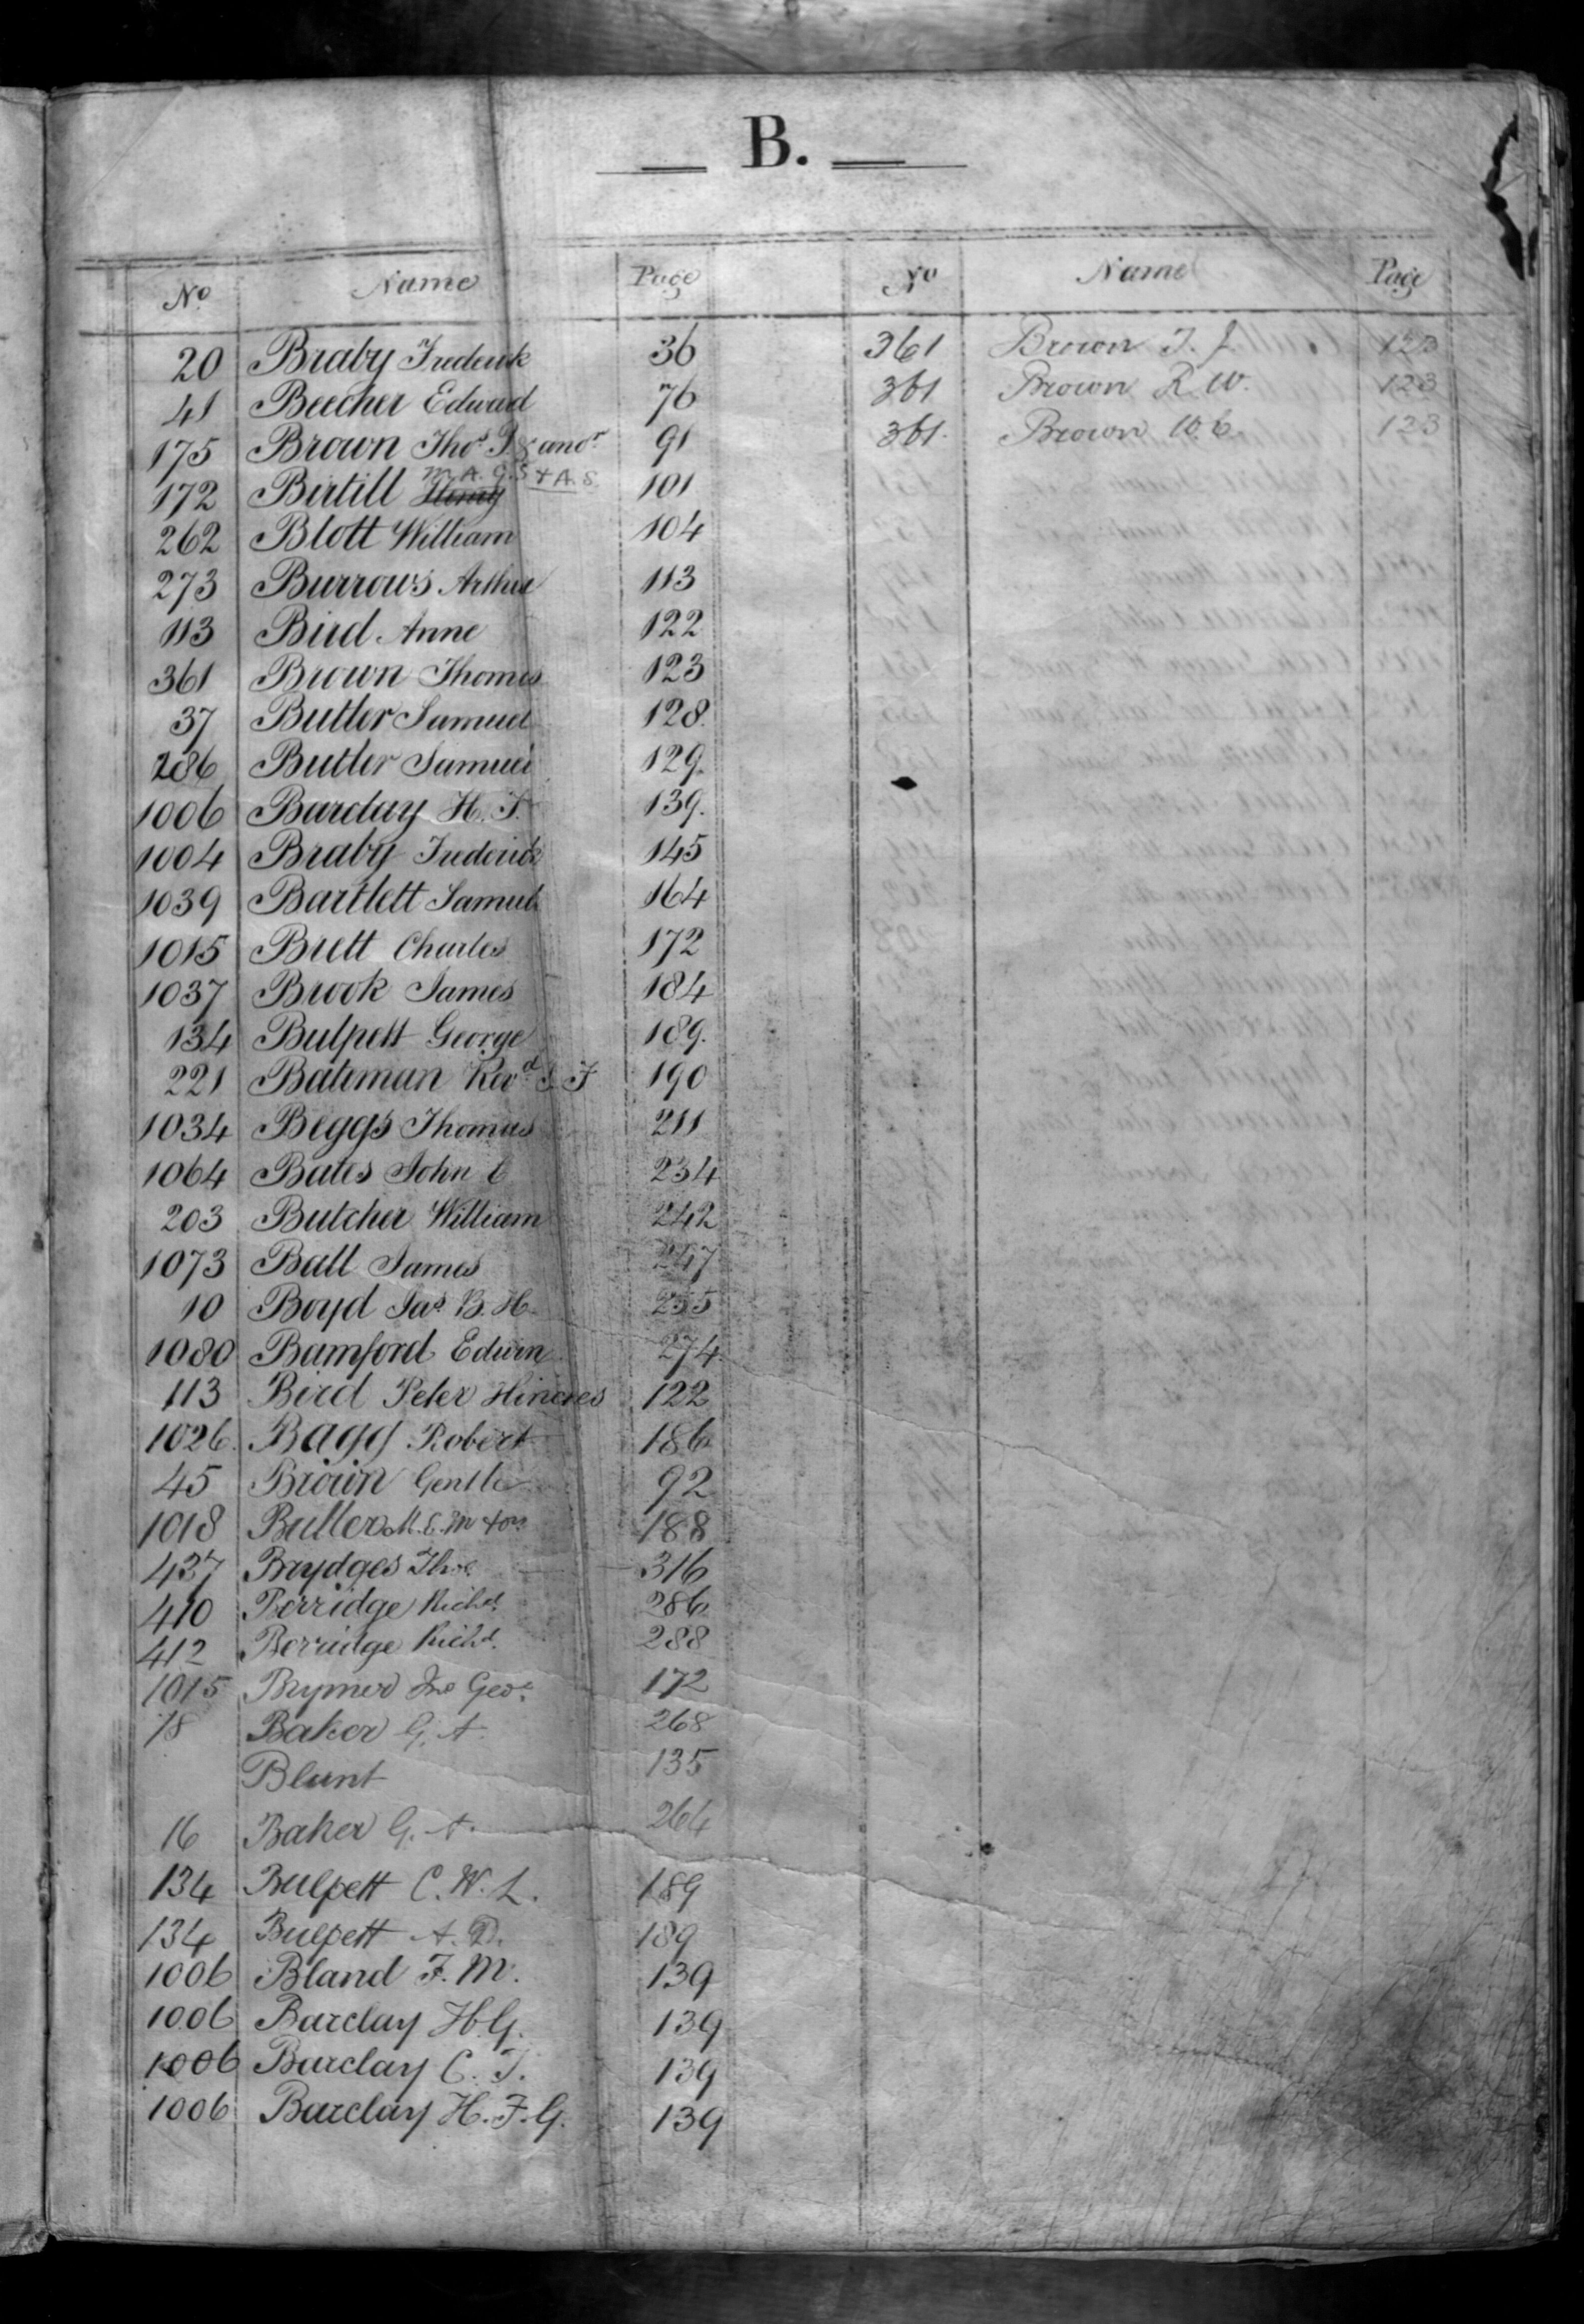 B.
No Name Page
20 Braby Frederick 36
41 Beecher Edward 76
175 Brown Thos P. & anor 91
M. A. G. S & A. S.
172 Birtill Henry 101
262 Blott William 104
273 Burrows Arthur 113
113 Bird Anne 122
361 Brown Thomas 123
37 Butler Samuel 128.
286 Butler Samuel 129.
1006 Barclay H. F. 139.
1004 Braby Frederick 145
1039 Bartlett Samuel 164
1015 Brett Charles 172
1037 Brook James 184
134 Bulpett George 189.
221 Bateman Revd J. F 190
1034 Beggs Thomas 211
1064 Bates John C 234
203 Butcher William 242
1073 Ball James 247
10 Boyd Jas B. H. 255
1080 Bamford Edwin 274
113 Bird Peter Hinckes 122
1026 Bagg Robert 186
45 Brown Gentle 92
1018 Butler M. E. M & ors 188
437 Brydges Thos 316
410 Berridge Richd 286
412 Berridge Richd 288
1015 Brymer Jno Geo. 172
18 Baker G. A. 268
Blunt 135
16 Baker G. A. 264
134 Bulpett C. W. L. 189
134 Bulpett A. D. 189
1006 Bland F. M. 139
1006 Barclay H. G. 139
1006 Barclay C. T. 139
1006 Barclay H. F. G. 139
No Name Page
361 Brown T. J. 123
361 Brown R. W. 123
361. Brown W. C. 123